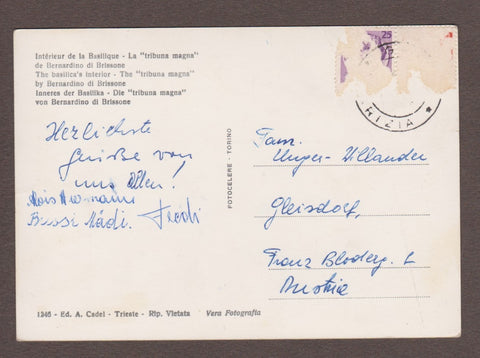 Intérieur de la Basilique - La "tribuna magna"
de Bernardino di Brissone
The basilica's interior - The "tribuna magna"
by Bernardino di Brissone
Inneres der Basilika - Die "tribuna magna"
von Bernardino di Brissone
Herzlichste
Grüße von
uns Allen!
Alois Hermann
Bussi Mädi. Fredi
FOTOCELERE - TORINO
25
RIZIA *
Fam.
Unger-Willander
Gleisdorf,
Franz Bloderg. 2
Austria
1246 - Ed. A. Cadel - Trieste - Rip. Vietata Vera Fotografia